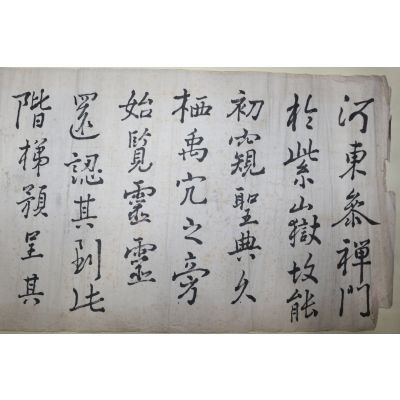 河東參禪門
於紫山嶽故能
初窺聖典久
栖禹穴之旁
始覽靈靈
還認其到此
階梯預呈其